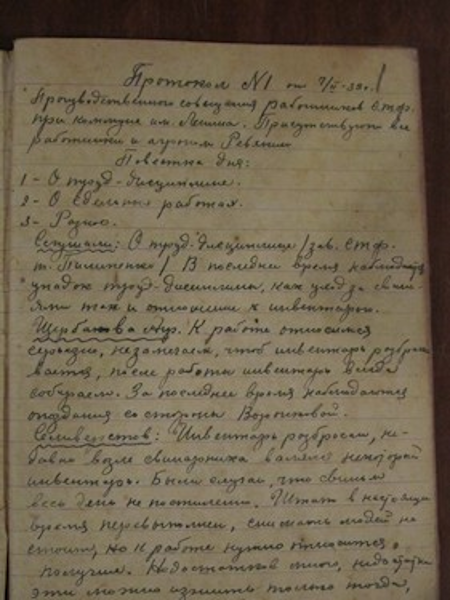 Протокол №1 от 7/II-38г.
Производственного совещания работников стф.
при коммуне им. Ленина. Присутствуют все
работники и агроном Ревякин
Повестка дня:
1 - О труд-дисциплине.
2 - О сдельных работах.
3 - Разное.
Слушали: О труд-дисциплине /зав. стф.
т. Пилипенко/ В последнее время наблюдается
упадок труд-дисциплины, как уход за свинь-
ями так и отношение к инвентарю.
Щербакова К работе относимся
серьезно, незамечаем, чтоб инвентарь разбрасы
вается, после работы инвентарь всегда
собираем. За последнее время наблюдаются
опоздания со стороны Воронковой.
Селиверстов: Инвентарь разбросан, не-
давно возле свинарника валялся некоторый
инвентарь. Были случаи, что свиньям
весь день не постилали. Штат в настоящее
время перевыполнен, снимать людей не
стоит, но к работе нужно относится
получше. Недостатков много, недостатки
эти можно изжить только тогда,